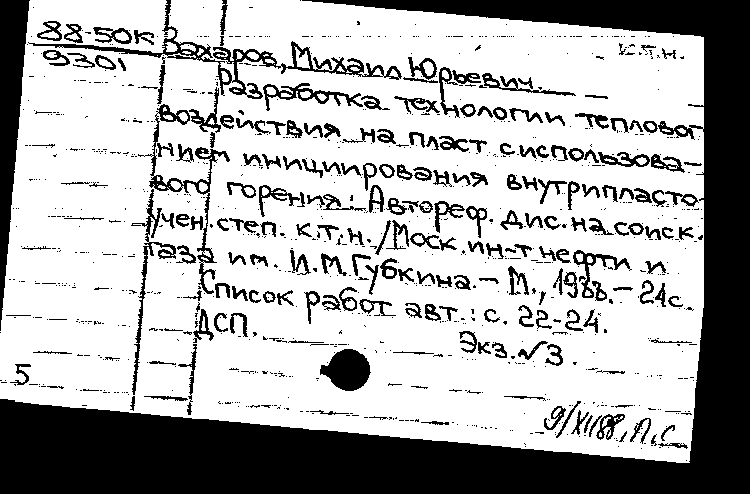 к.т.н.
88-50к
9301
Захаров, Михаил Юрьевич.
Разработка технологии тепловог
воздействия на пласт с использова-
нием инициирования внутрипласто-
вого горения: Автореф. дис. на соиск.
учен. степ. к.т.н. / Моск. ин-т нефти и
газа им. И.М. Губкина. - М., 1988. - 24 с.
Список работ авт.: с. 22-24.
ДСП.
Экз. №3.
5
9/XII88, Л.С